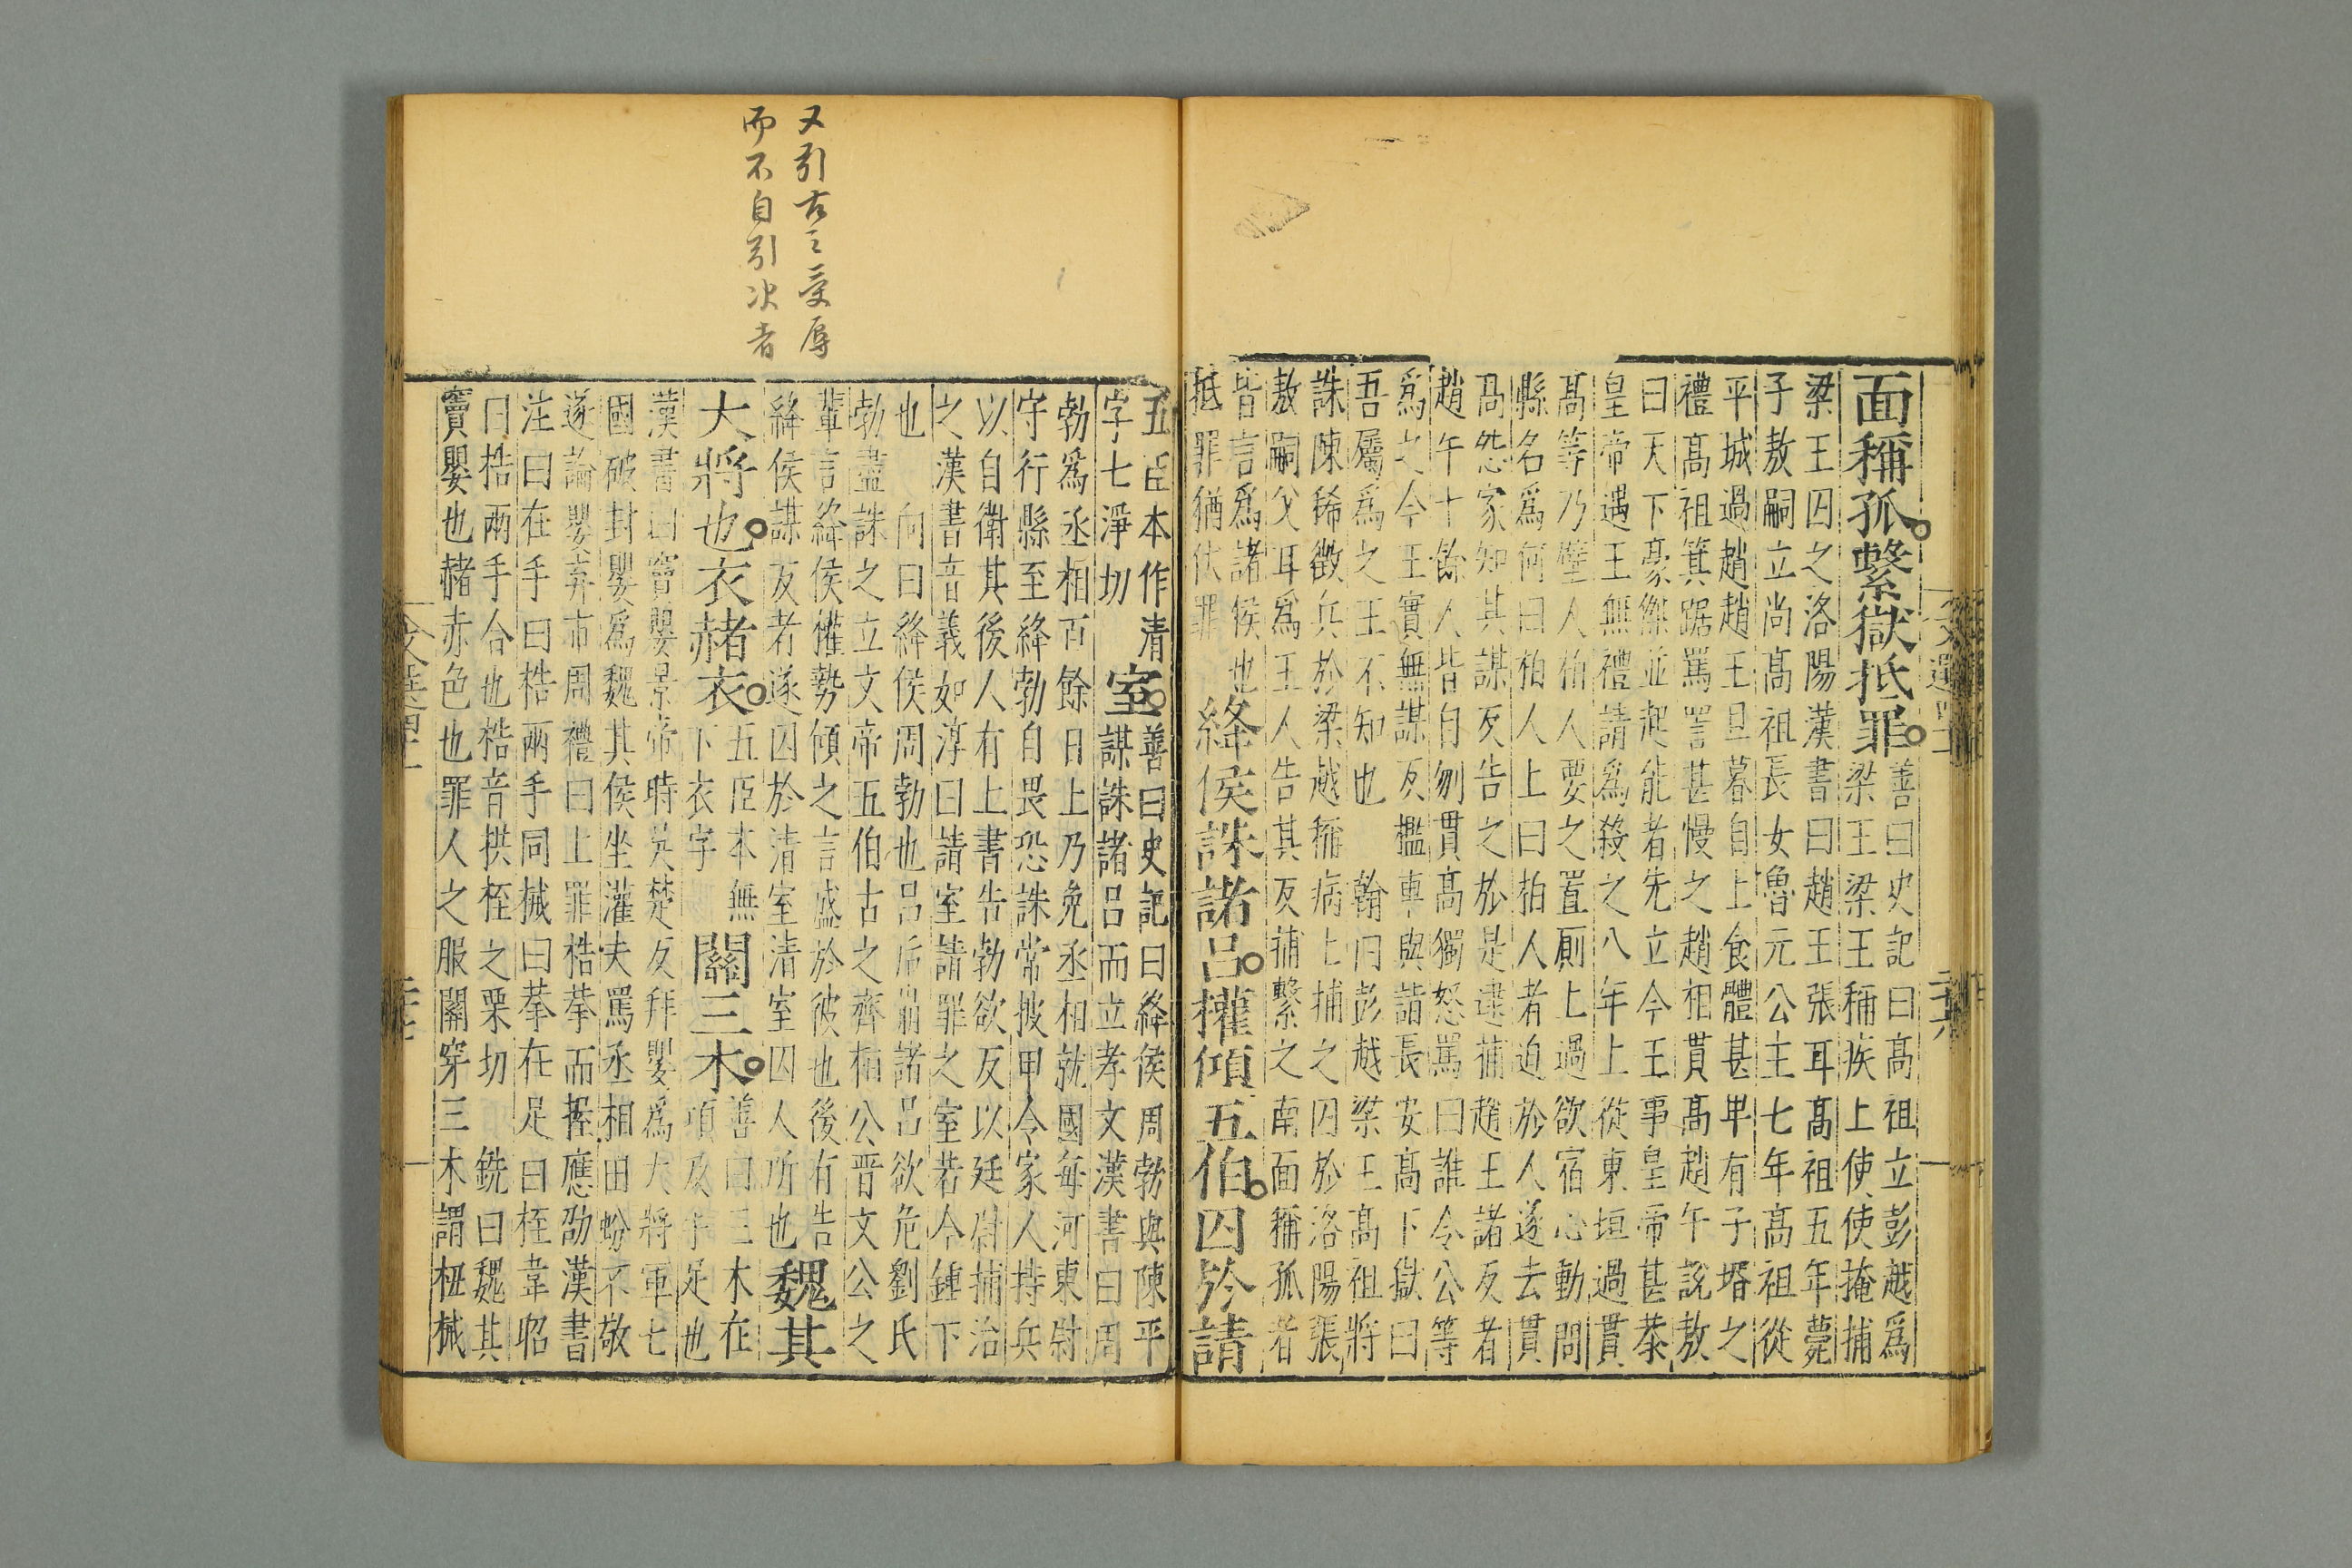 面稱孤繫獄抵罪善曰史記曰高祖立彭越爲
梁王梁王稱疾上使使掩捕
梁王囚之洛陽漢書曰趙王張耳高祖五年薨
子敖嗣立尚高祖長女魯元公主七年高祖從
平城過趙趙王旦暮自上食體甚卑有子壻之
禮高祖箕踞罵詈甚慢之趙相貫高趙午説敖
曰天下豪傑並起能者先立今王事皇帝甚恭
皇帝遇王無禮請爲殺之八年上從東垣過貫
高等乃壁人伯人要之置厠上過欲宿心動問
縣名爲何曰柏人上曰柏人者迫於人遂去貫
高怨家知其謀反告之於是逮捕趙王諸反者
趙午十餘人皆自刎貫高獨怒罵曰誰令公等
爲之今王實無謀反檻車與詣長安高下獄曰
吾屬爲之王不知也 翰曰彭越梁王高祖將
誅陳豨徵兵於梁越稱病上捕之囚於洛陽張
敖嗣父耳爲王人告其反捕繫之南面稱孤者
皆言爲諸侯也
抵罪猶伏罪
絳侯誅諸呂權傾五伯囚於請
五臣本作清
字七淨切
室善曰史記曰絳侯周勃與陳平
謀誅諸呂而立孝文漢書曰周
勃爲丞相百餘日上乃免丞相就國每河東尉
守行縣至絳勃自畏恐誅常披甲令家人持兵
以自衛其後人有上書告勃欲反以廷尉捕治
之漢書音義如淳曰請室請罪之室若今鍾下
也 向曰絳侯周勃也呂后崩諸呂欲危劉氏
勃盡誅之立文帝五伯古之齊桓公晉文公之
輩言絳侯權勢傾之言盛於彼也後有告
絳侯謀反者遂囚於清室清室囚人所也
魏其
大將也衣赭衣五臣本無
下衣字
關三木善曰三木在
項及手足也
漢書曰竇嬰景帝時吳楚反拜嬰爲大將軍七
國破封嬰爲魏其侯坐灌夫罵丞相田蚡不敬
遂論嬰弃市周禮曰上罪梏拲而桎應劭漢書
注曰在手曰梏兩手同械曰拲在足曰桎韋昭
曰梏兩手合也梏音拱桎之栗切 銑曰魏其
竇嬰也赭赤色也罪人之服關穿三木謂杻械
又引古之受辱
而不自引决者